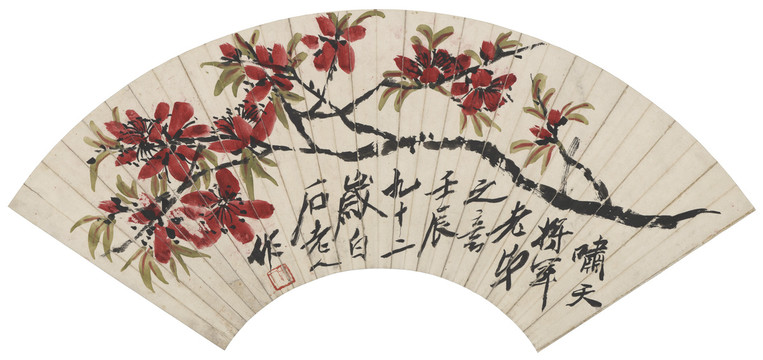 嘯天
將軍
老弟
之意
壬辰
九十二
歲白
石老人
作